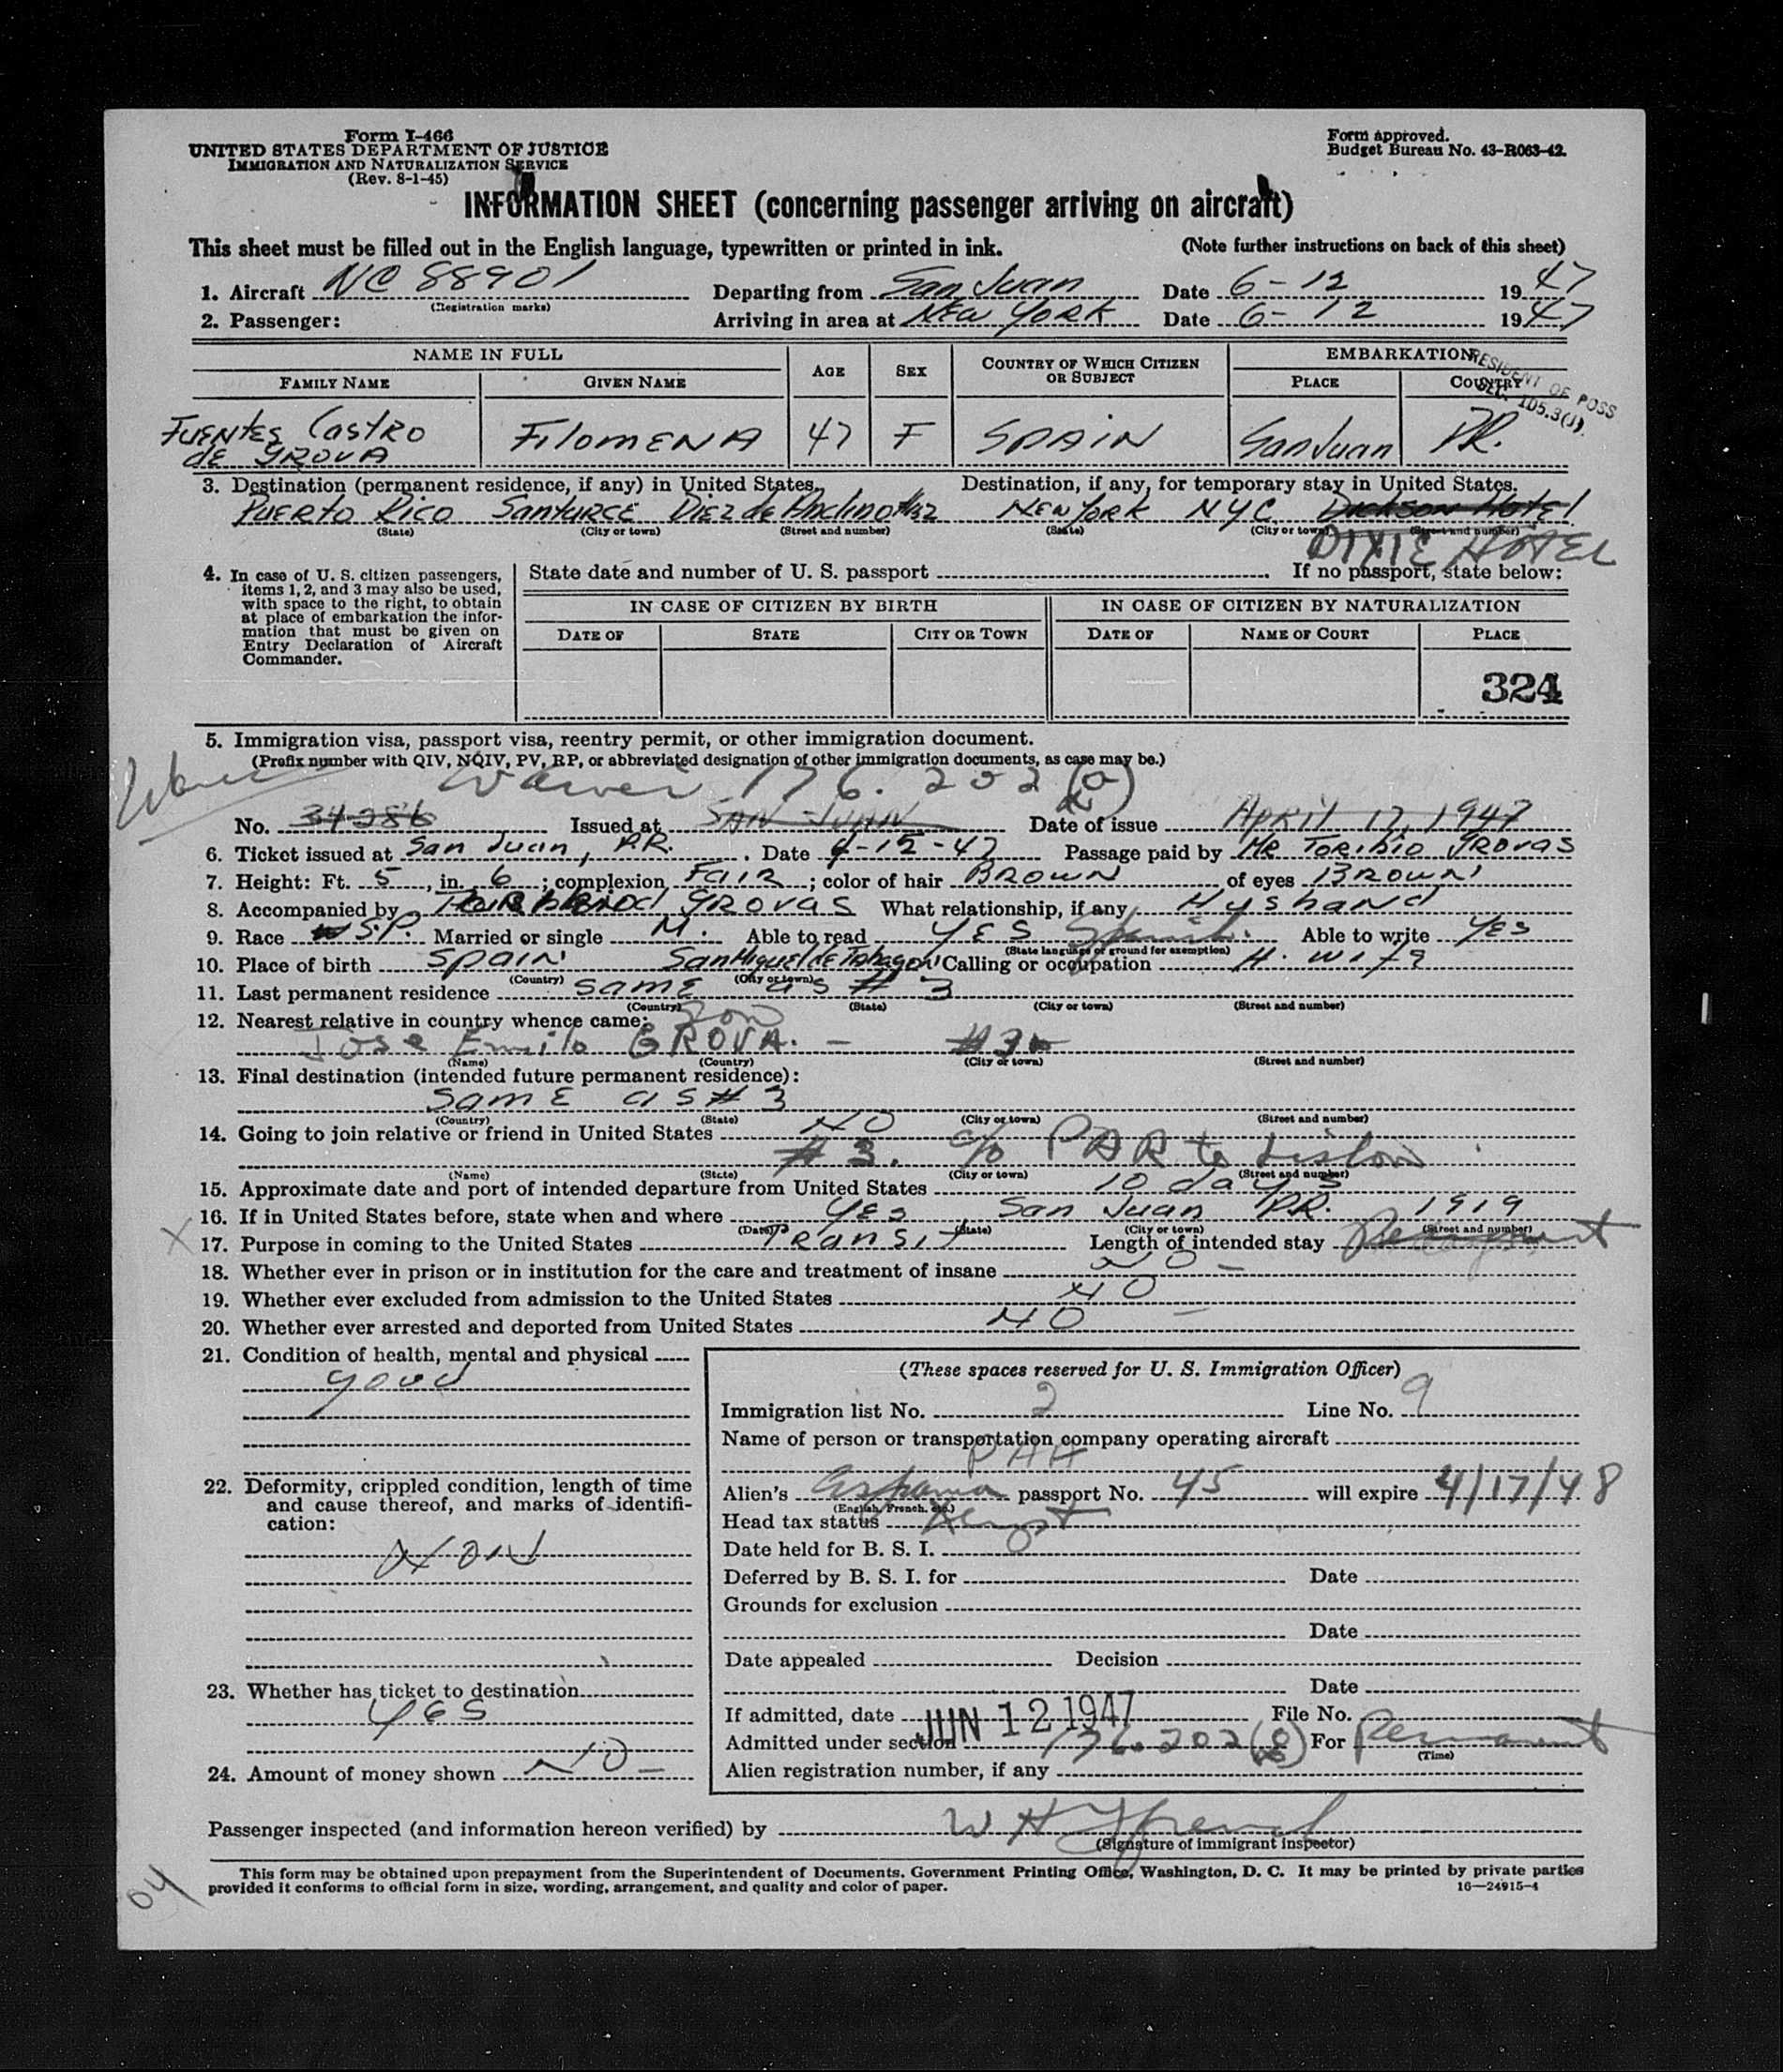 Form I-466
UNITED STATES DEPARTMENT OF JUSTICE
IMMIGRATION AND NATURALIZATION SERVICE
(Rev. 8-1-45)
Form approved.
Budget Bureau No. 43-R063-42.
INFORMATION SHEET (concerning passenger arriving on aircraft)
This sheet must be filled out in the English language, typewritten or printed in ink. (Note further instructions on back of this sheet)
1. Aircraft NC 88901 Departing from San Juan Date 6-12 1947
(Registration marks)
2. Passenger: Arriving in area at NEW YORK Date 6-12 1947
NAME IN FULL
FAMILY NAME GIVEN NAME AGE SEX COUNTRY OF WHICH CITIZEN OR SUBJECT EMBARKATION PLACE COUNTRY
RESIDENT OF POSS
SEC. 105.3(J).
FUENTES CASTRO DE GROVA FILOMENA 47 F SPAIN San Juan P.R.
3. Destination (permanent residence, if any) in United States. Destination, if any, for temporary stay in United States.
PUERTO RICO SANTURCE DIEZ de Andino #32 NEW YORK NYC DICKSON HOTEL
(State) (City or town) (Street and number) (State) (City or town) (Street and number)
DIXIE HOTEL
4. In case of U. S. citizen passengers, items 1, 2, and 3 may also be used, with space to the right, to obtain at place of embarkation the information that must be given on Entry Declaration of Aircraft Commander.
State date and number of U. S. passport If no passport, state below:
IN CASE OF CITIZEN BY BIRTH IN CASE OF CITIZEN BY NATURALIZATION
DATE OF STATE CITY OR TOWN DATE OF NAME OF COURT PLACE
324
5. Immigration visa, passport visa, reentry permit, or other immigration document.
(Prefix number with QIV, NQIV, PV, RP, or abbreviated designation of other immigration documents, as case may be.)
Waiver 176.202(a)
No. 34286 Issued at SAN JUAN Date of issue APRIL 17, 1947
6. Ticket issued at San Juan, P.R. Date 4-15-47 Passage paid by MR TORIBIO GROVAS
7. Height: Ft. 5, in. 6; complexion FAIR; color of hair BROWN of eyes BROWN
8. Accompanied by GROVAS What relationship, if any Husband
9. Race SP. Married or single M. Able to read YES Spanish. Able to write YES
(State language or ground for exemption)
10. Place of birth SPAIN San Miguel de Tabagon Calling or occupation H. wife
(Country) (City or town)
11. Last permanent residence SAME as # 3
(Country) (State) (City or town) (Street and number)
12. Nearest relative in country whence came: son
Jose Emilo GROVA. - #3
(Name) (Country) (City or town) (Street and number)
13. Final destination (intended future permanent residence):
SAME as # 3
(Country) (State) (City or town) (Street and number)
14. Going to join relative or friend in United States NO
# 3. c/o PAA to Lisbon
(Name) (State) (City or town) (Street and number)
15. Approximate date and port of intended departure from United States 10 days
16. If in United States before, state when and where Yes San Juan P.R. 1919
(Date) (State) (City or town) (Street and number)
X 17. Purpose in coming to the United States Transit Length of intended stay Permanent
18. Whether ever in prison or in institution for the care and treatment of insane NO -
19. Whether ever excluded from admission to the United States NO
20. Whether ever arrested and deported from United States NO
21. Condition of health, mental and physical
good
22. Deformity, crippled condition, length of time and cause thereof, and marks of identification:
NON
23. Whether has ticket to destination
YES
24. Amount of money shown NO -
(These spaces reserved for U. S. Immigration Officer)
Immigration list No. 2 Line No. 9
Name of person or transportation company operating aircraft
PAA
Alien's passport No. 45 will expire 4/17/48
(English, French, etc.)
Head tax status Exempt
Date held for B. S. I.
Deferred by B. S. I. for Date
Grounds for exclusion
Date
Date appealed Decision
Date
If admitted, date JUN 12 1947 File No.
Admitted under section 176.202 For Permanent
(Time)
Alien registration number, if any
Passenger inspected (and information hereon verified) by W H
(Signature of immigrant inspector)
This form may be obtained upon prepayment from the Superintendent of Documents, Government Printing Office, Washington, D. C. It may be printed by private parties
provided it conforms to official form in size, wording, arrangement, and quality and color of paper. 16—24915-4
04